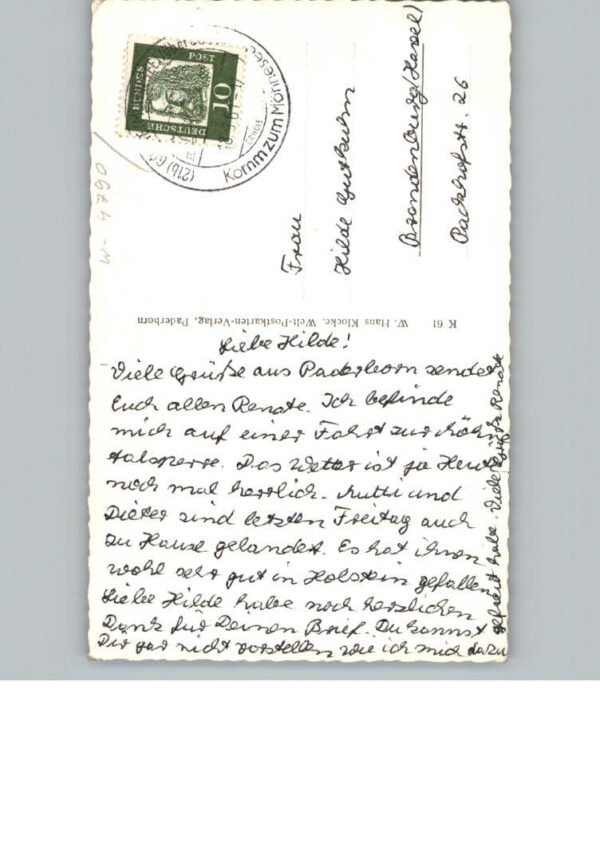 DEUTSCHE
BUNDES
POST
10
Komm zum Möhnesee
(21b)
W-4790
Frau
Hilde
Brandenburg/Havel)
Packhofstr. 26
K 61 W. Hans Klocke, Welt-Postkarten-Verlag, Paderborn
Liebe Hilde!
Viele Grüße aus Paderborn sendet
Euch allen Renate. Ich befinde
mich auf einer Fahrt zur Möhne
talsperre. Das Wetter ist ja Heute
noch mal herrlich. Mutti und
Dieter sind letzten Freitag auch
zu Hause gelandet. Es hat ihnen
wohl sehr gut in Holstein gefallen
Liebe Hilde habe noch herzlichen
Dank für Deinen Brief. Du kannst
Dir gar nicht vorstellen wie ich mich dazu
gefreut habe. Viele Grüße Renate